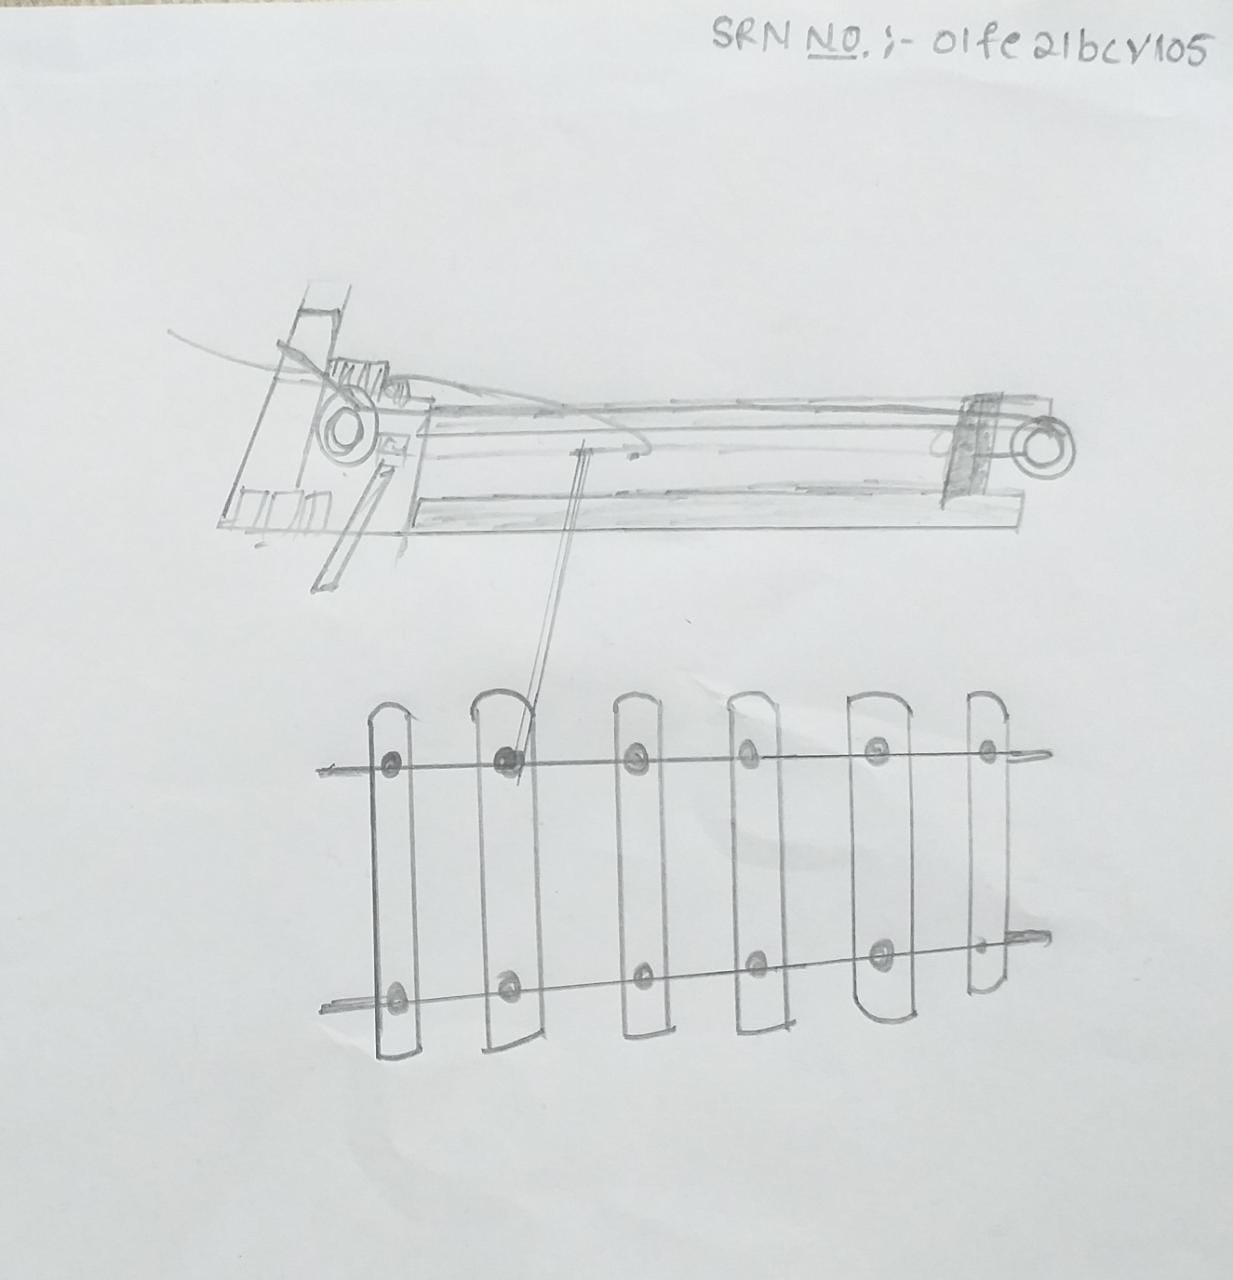 SRN NO. :- 01fe21bcv105